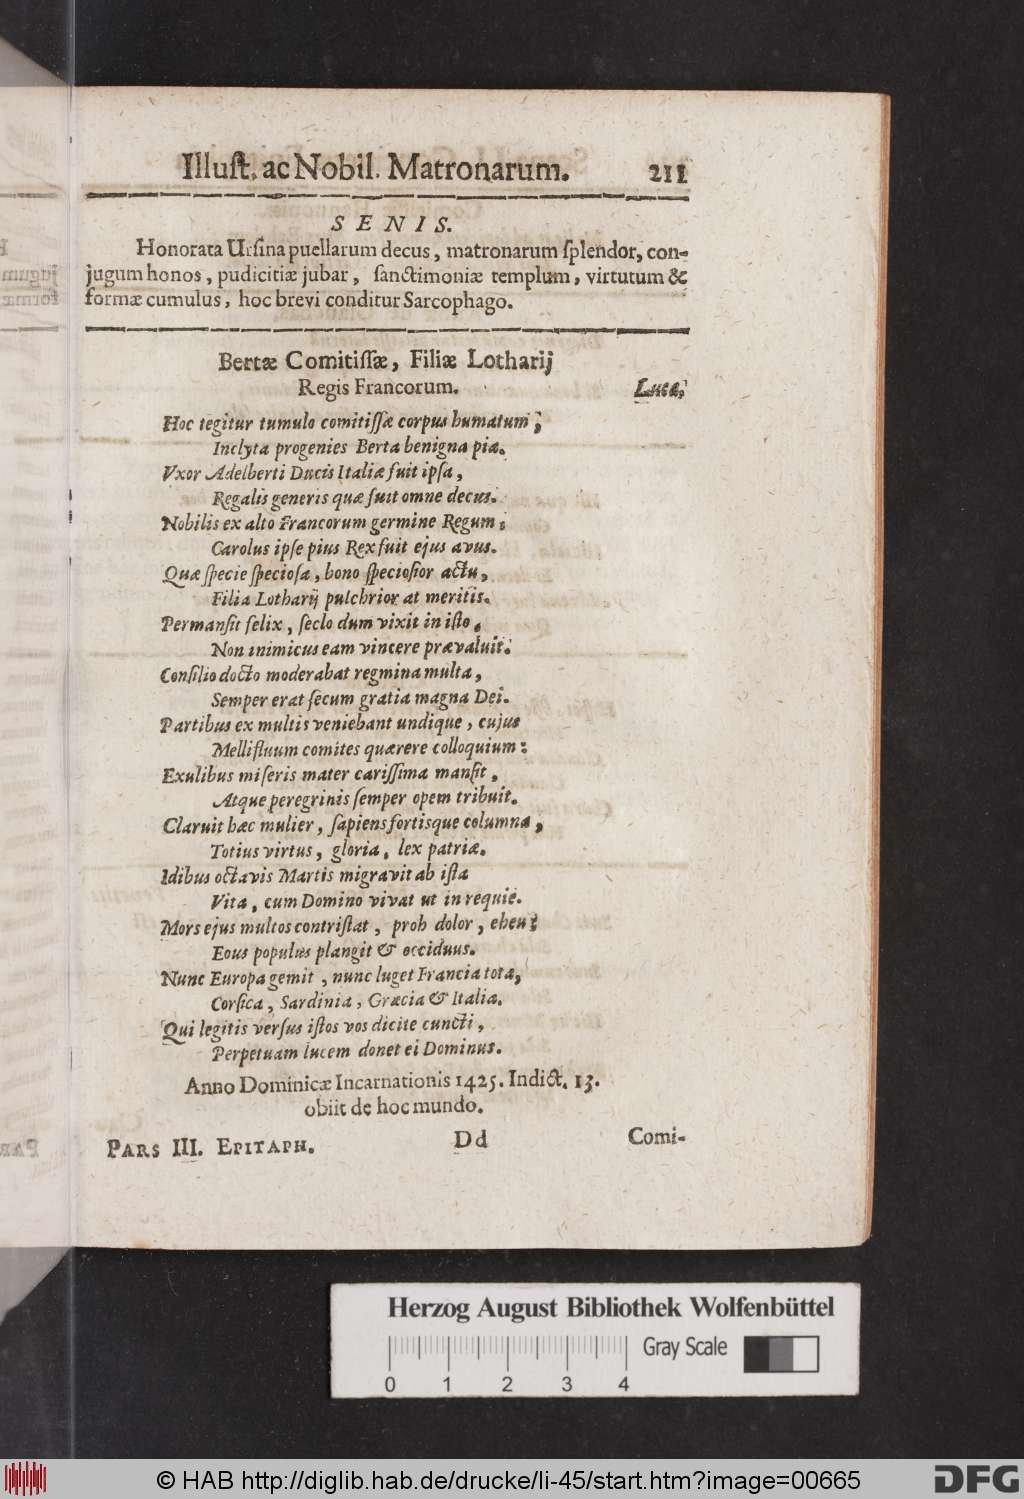 Illuſt. ac Nobil. Matronarum. 211
SENIS.
Honorata Urſina puellarum decus, matronarum ſplendor, con-
jugum honos, pudicitiæ jubar, ſanctimoniæ templum, virtutum &
formæ cumulus, hoc brevi conditur Sarcophago.
Bertæ Comitiſſæ, Filiæ Lotharij
Regis Francorum. Lucæ,
Hoc tegitur tumulo comitiſſæ corpus humatum;
Inclyta progenies Berta benigna pia.
Vxor Adelberti Ducis Italiæ fuit ipſa,
Regalis generis quæ fuit omne decus.
Nobilis ex alto Francorum germine Regum;
Carolus ipſe pius Rex fuit ejus avus.
Quæ ſpecie ſpecioſa, bono ſpecioſior actu,
Filia Lotharij pulchrior at meritis.
Permanſit felix, ſeclo dum vixit in iſto,
Non inimicus eam vincere prævaluit.
Conſilio docto moderabat regmina multa,
Semper erat ſecum gratia magna Dei.
Partibus ex multis veniebant undique, cujus
Mellifluum comites quærere colloquium:
Exulibus miſeris mater cariſſima manſit,
Atque peregrinis ſemper opem tribuit.
Claruit hæc mulier, ſapiens fortisque columna,
Totius virtus, gloria, lex patriæ.
Idibus octavis Martis migravit ab iſta
Vita, cum Domino vivat ut in requie.
Mors ejus multos contriſtat, proh dolor, eheu!
Eous populus plangit & occiduus.
Nunc Europa gemit, nunc luget Francia tota,
Corſica, Sardinia, Græcia & Italia.
Qui legitis verſus iſtos vos dicite cuncti,
Perpetuam lucem donet ei Dominus.
Anno Dominicæ Incarnationis 1425. Indict. 13.
obiit de hoc mundo.
PARS III. EPITAPH. Dd Comi-
Herzog August Bibliothek Wolfenbüttel
Gray Scale
0 1 2 3 4
© HAB http://diglib.hab.de/drucke/li-45/start.htm?image=00665
DFG